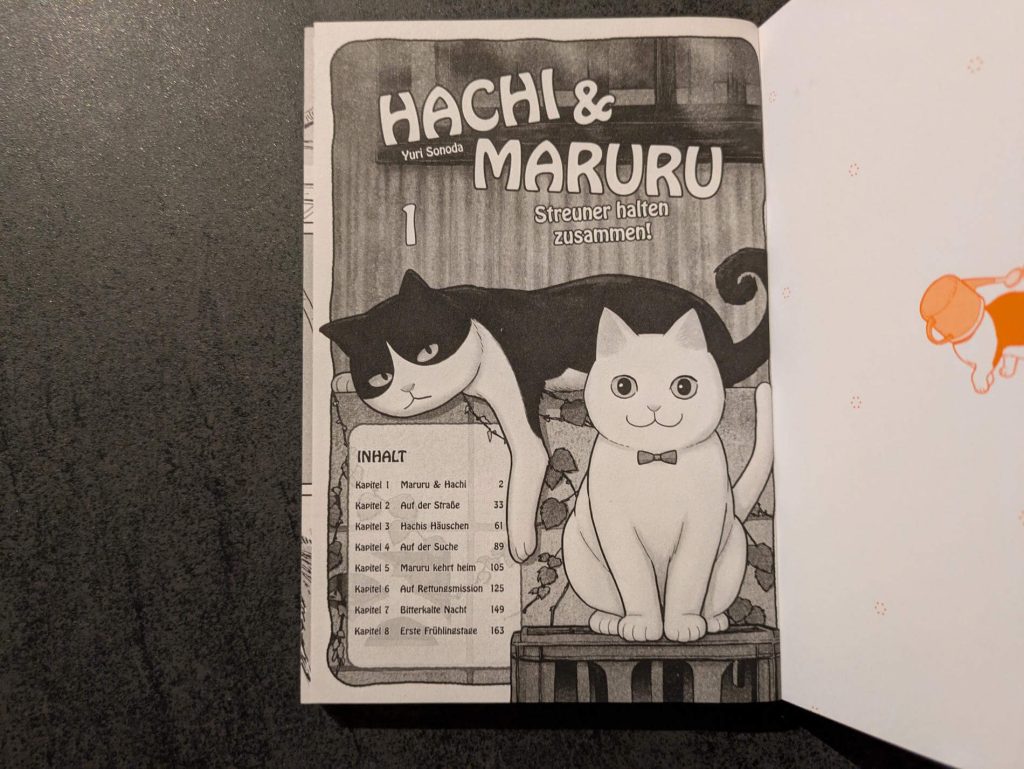 HACHI &
Yuri Sonoda
MARURU
1
Streuner halten
zusammen!
INHALT
Kapitel 1 Maruru & Hachi 2
Kapitel 2 Auf der Straße 33
Kapitel 3 Hachis Häuschen 61
Kapitel 4 Auf der Suche 89
Kapitel 5 Maruru kehrt heim 105
Kapitel 6 Auf Rettungsmission 125
Kapitel 7 Bitterkalte Nacht 149
Kapitel 8 Erste Frühlingstage 163